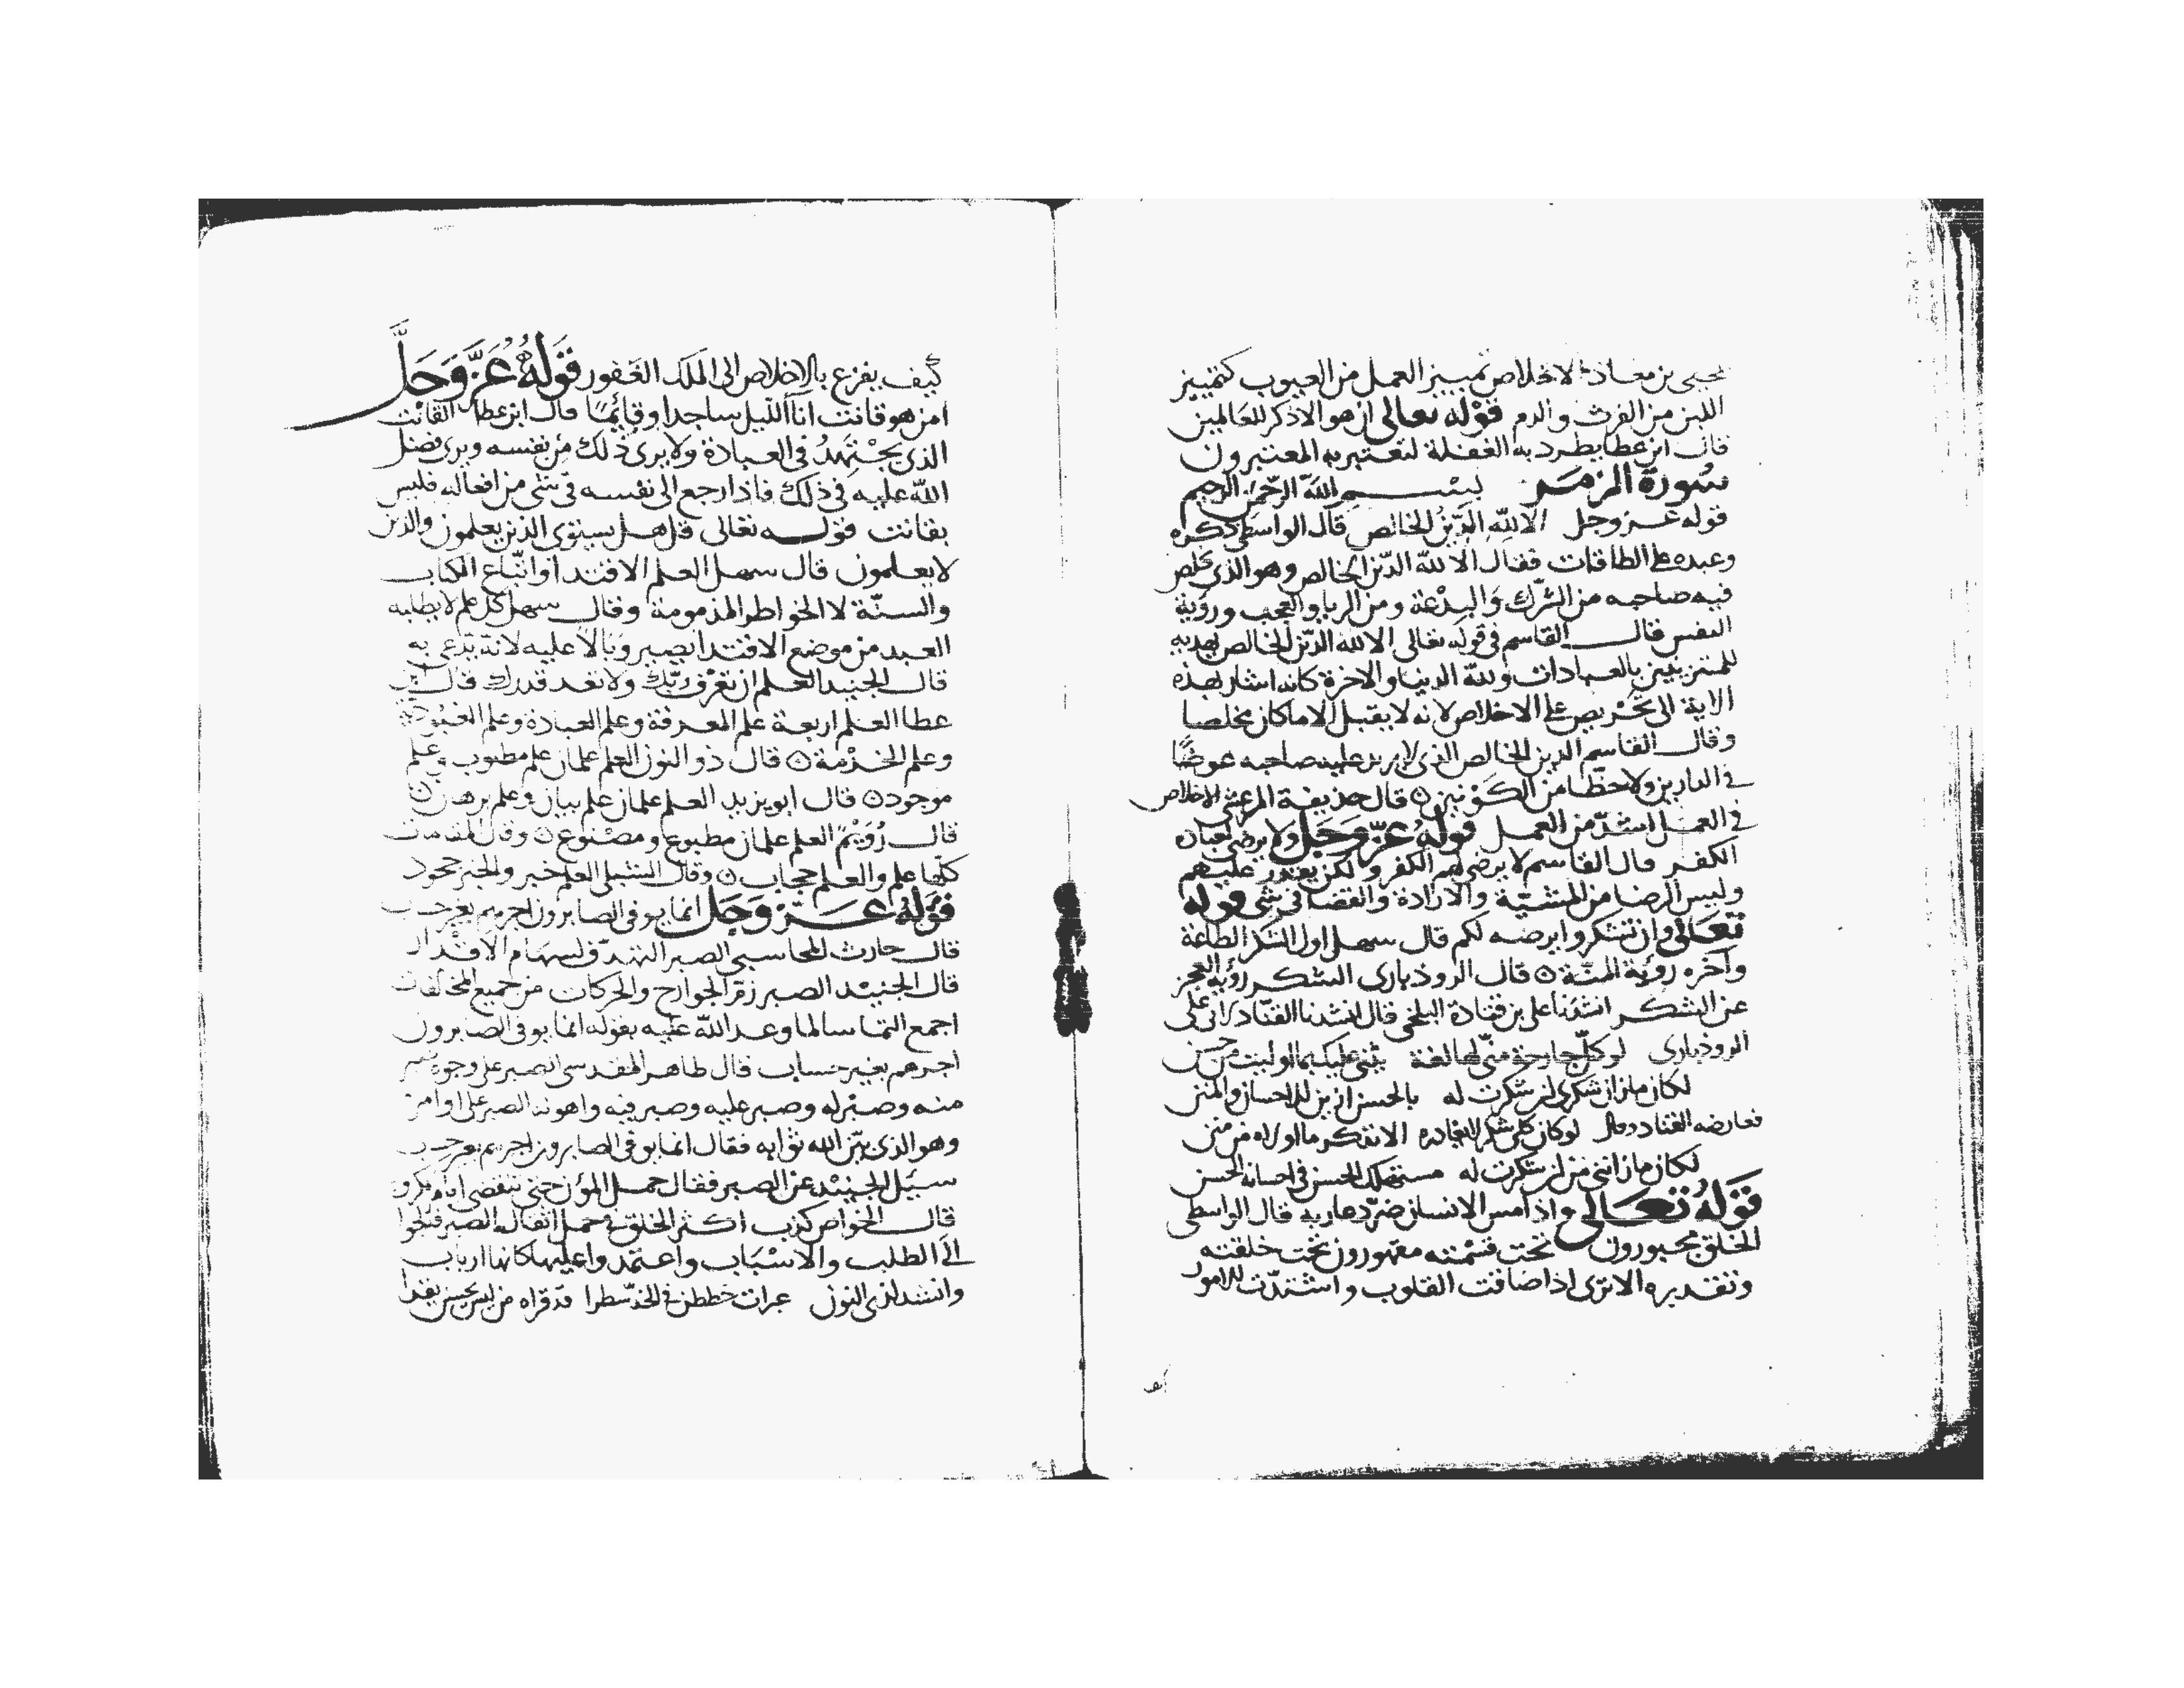 يحيى بن معاذ الاخلاص تمييز العمل من العيوب كتمييز
اللبن من الفرث والدم قوله تعالى ان هو الا ذكر للعالمين
قال ابن عطا يطرد به الغفلة لتعتبر به المعتبرون
سورة الزمر بسم الله الرحمن الرحيم
قوله عز وجل الا لله الدين الخالص قال الواسطى ذكره
وعبده على الطاقات فقال الا لله الدين الخالص وهو الذى يخلص
فيه صاحبه من الشرك والبدعة ومن الريا والعجب وروية
النفس قال القاسم فى قوله تعالى الا لله الدين الخالص
للمتزينين بالعبادات ولله الدنيا والاخرة كانه اشار بهذه
الاية الى تحريص على الاخلاص لانه لا يقبل الا ما كان مخلصا
وقال القاسم الدين الخالص الذى لا يريد عليه صاحبه عوضا
فى الدارين ولا حظا من الكونين قال حذيفة المرعشى الاخلاص
فى العمل اشد من العمل قوله عز وجل ولا يرضى لعباده
الكفر قال القاسم لا يرضى لهم الكفر ولكن يقدر عليهم
وليس الرضا من المشيّة والارادة والقضا فى شى قوله
تعالى وان تشكروا يرضه لكم قال سهل اول الشكر الطاعة
وآخره روية المنّة قال الروذبارى الشكر روية العجز
عن الشكر انشدنا على بن قتادة البلخى قال انشدنا القناد لابى على
الروذبارى لو كل جارحة منى لها لغة تثنى عليك بما اوليت من حسن
لكان ما زان شكرى اذ شكرت له بالحسن ازين للاحسان والمنن
فعارضه القناد وقال
لكان ما زاننى من ان شكرت له مستهلك الحسن فى احسانه الحسن
قوله تعالى واذا مس الانسان ضر دعا ربه قال الواسطى
الخلق مجبورون تحت قسمته مقهورون تحت خلقته
وتقديره الا ترى اذا ضاقت القلوب واشتدت الامور
كيف
كيف يفزع بالاخلاص الى الملك الغفور قوله عز وجل
امن هو قانت آناَ الليل ساجدا وقايما قال ابن عطا القانت
الذى يجتهد فى العبادة ولا يرى ذلك من نفسه ويرى فضل
الله عليه فى ذلك فاذا رجع الى نفسه فى شى من افعاله فليس
بقانت قوله تعالى قل هل يستوى الذين يعلمون والذين
لا يعلمون قال سهل العلم الاقتدا واتباع الكتاب
والسنة لا الخواطر المذمومة وقال سهل كل علم لا يطلبه
العبد من موضع الاقتدا يصير وبالا عليه لانه يدعى به
قال الجنيد العلم ان تعرف ربك ولا تعد قدرك قال ابن
عطا العلم اربعة علم المعرفة وعلم العبادة وعلم العبودية
وعلم الخدمة قال ذو النون العلم علمان علم مطلوب وعلم
موجود قال ابو يزيد العلم علمان علم بيان وعلم برهان
قال رُويم العلم علمان مطبوع ومصنوع وقال
كلها علم والعلم حجاب وقال الشبلى العلم خبر والخبر جحود
قوله عز وجل انما يوفى الصابرون اجرهم بغير حساب
قال حارث المحاسبى الصبر التهدف لسهام الاقدار
قال الجنيد الصبر زم الجوارح والحركات من جميع المخالفات
اجمع التما سالما وعد الله عليه بقوله انما يوفى الصبرون
اجرهم بغير حساب قال طاهر المقدسى الصبر على وجوه صبر
منه وصبر له وصبر عليه وصبر فيه واهونه الصبر على اوامر
وهو الذى بيّن الله ثوابه فقال انما يوفى الصابرون اجرهم بغير حساب
سيل الجنيد عن الصبر فقال حمل المؤن حتى تنقضى ايام مكروه
قال الخواص كذب اكثر الخلق فى حمل اثقال الصبر فلجوا
الى الطلب والاسباب واعتمدوا عليها كانها ارباب
وانشد لذى النون عبرات خططن فى الخد سطرا قد قراه من ليس يحسن يقرا